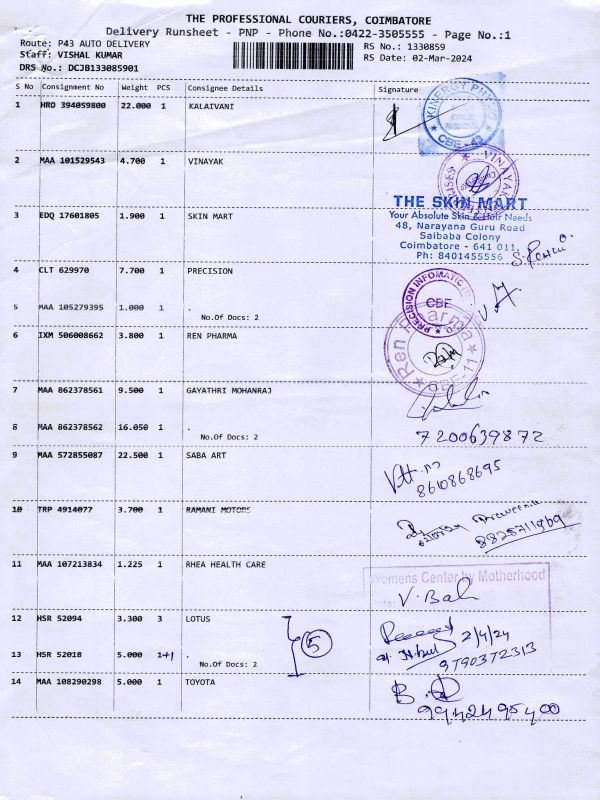 THE PROFESSIONAL COURIERS, COIMBATORE
Delivery Runsheet - PNP - Phone No.:0422-3505555 - Page No.:1
Route: P43 AUTO DELIVERY
RS No.: 1330859
Staff: VISHAL KUMAR
RS Date: 02-Mar-2024
DRS No.: DCJB133085901
S No Consignment No Weight PCS Consignee Details Signature
1 HRD 394059800 22.000 1 KALAIVANI
KINERGY
CBE - 43
2 MAA 101529543 4.700 1 VINAYAK
VINAYAK
3 EDQ 17601805 1.900 1 SKIN MART
THE SKIN MART
Your Absolute Skin & Hair Needs
48, Narayana Guru Road
Saibaba Colony
Coimbatore - 641 011.
Ph: 8401455556
4 CLT 629970 7.700 1 PRECISION
PRECISION INFOMATIC
CBE
5 MAA 105279395 1.000 1 .
No.Of Docs: 2
6 IXM 506008662 3.800 1 REN PHARMA
Ren Pharma
CBE-11
7 MAA 862378561 9.500 1 GAYATHRI MOHANRAJ
8 MAA 862378562 16.050 1 .
No.Of Docs: 2
7200639872
9 MAA 572855087 22.500 1 SABA ART
8610868695
10 TRP 4914077 3.700 1 RAMANI MOTORS
11 MAA 107213834 1.225 1 RHEA HEALTH CARE
Womens Center by Motherhood
V. Bal
12 HSR 52094 3.300 3 LOTUS
5
2/4/24
13 HSR 52018 5.000 1+1 .
No.Of Docs: 2
9790372313
14 MAA 108290298 5.000 1 TOYOTA
9942495400